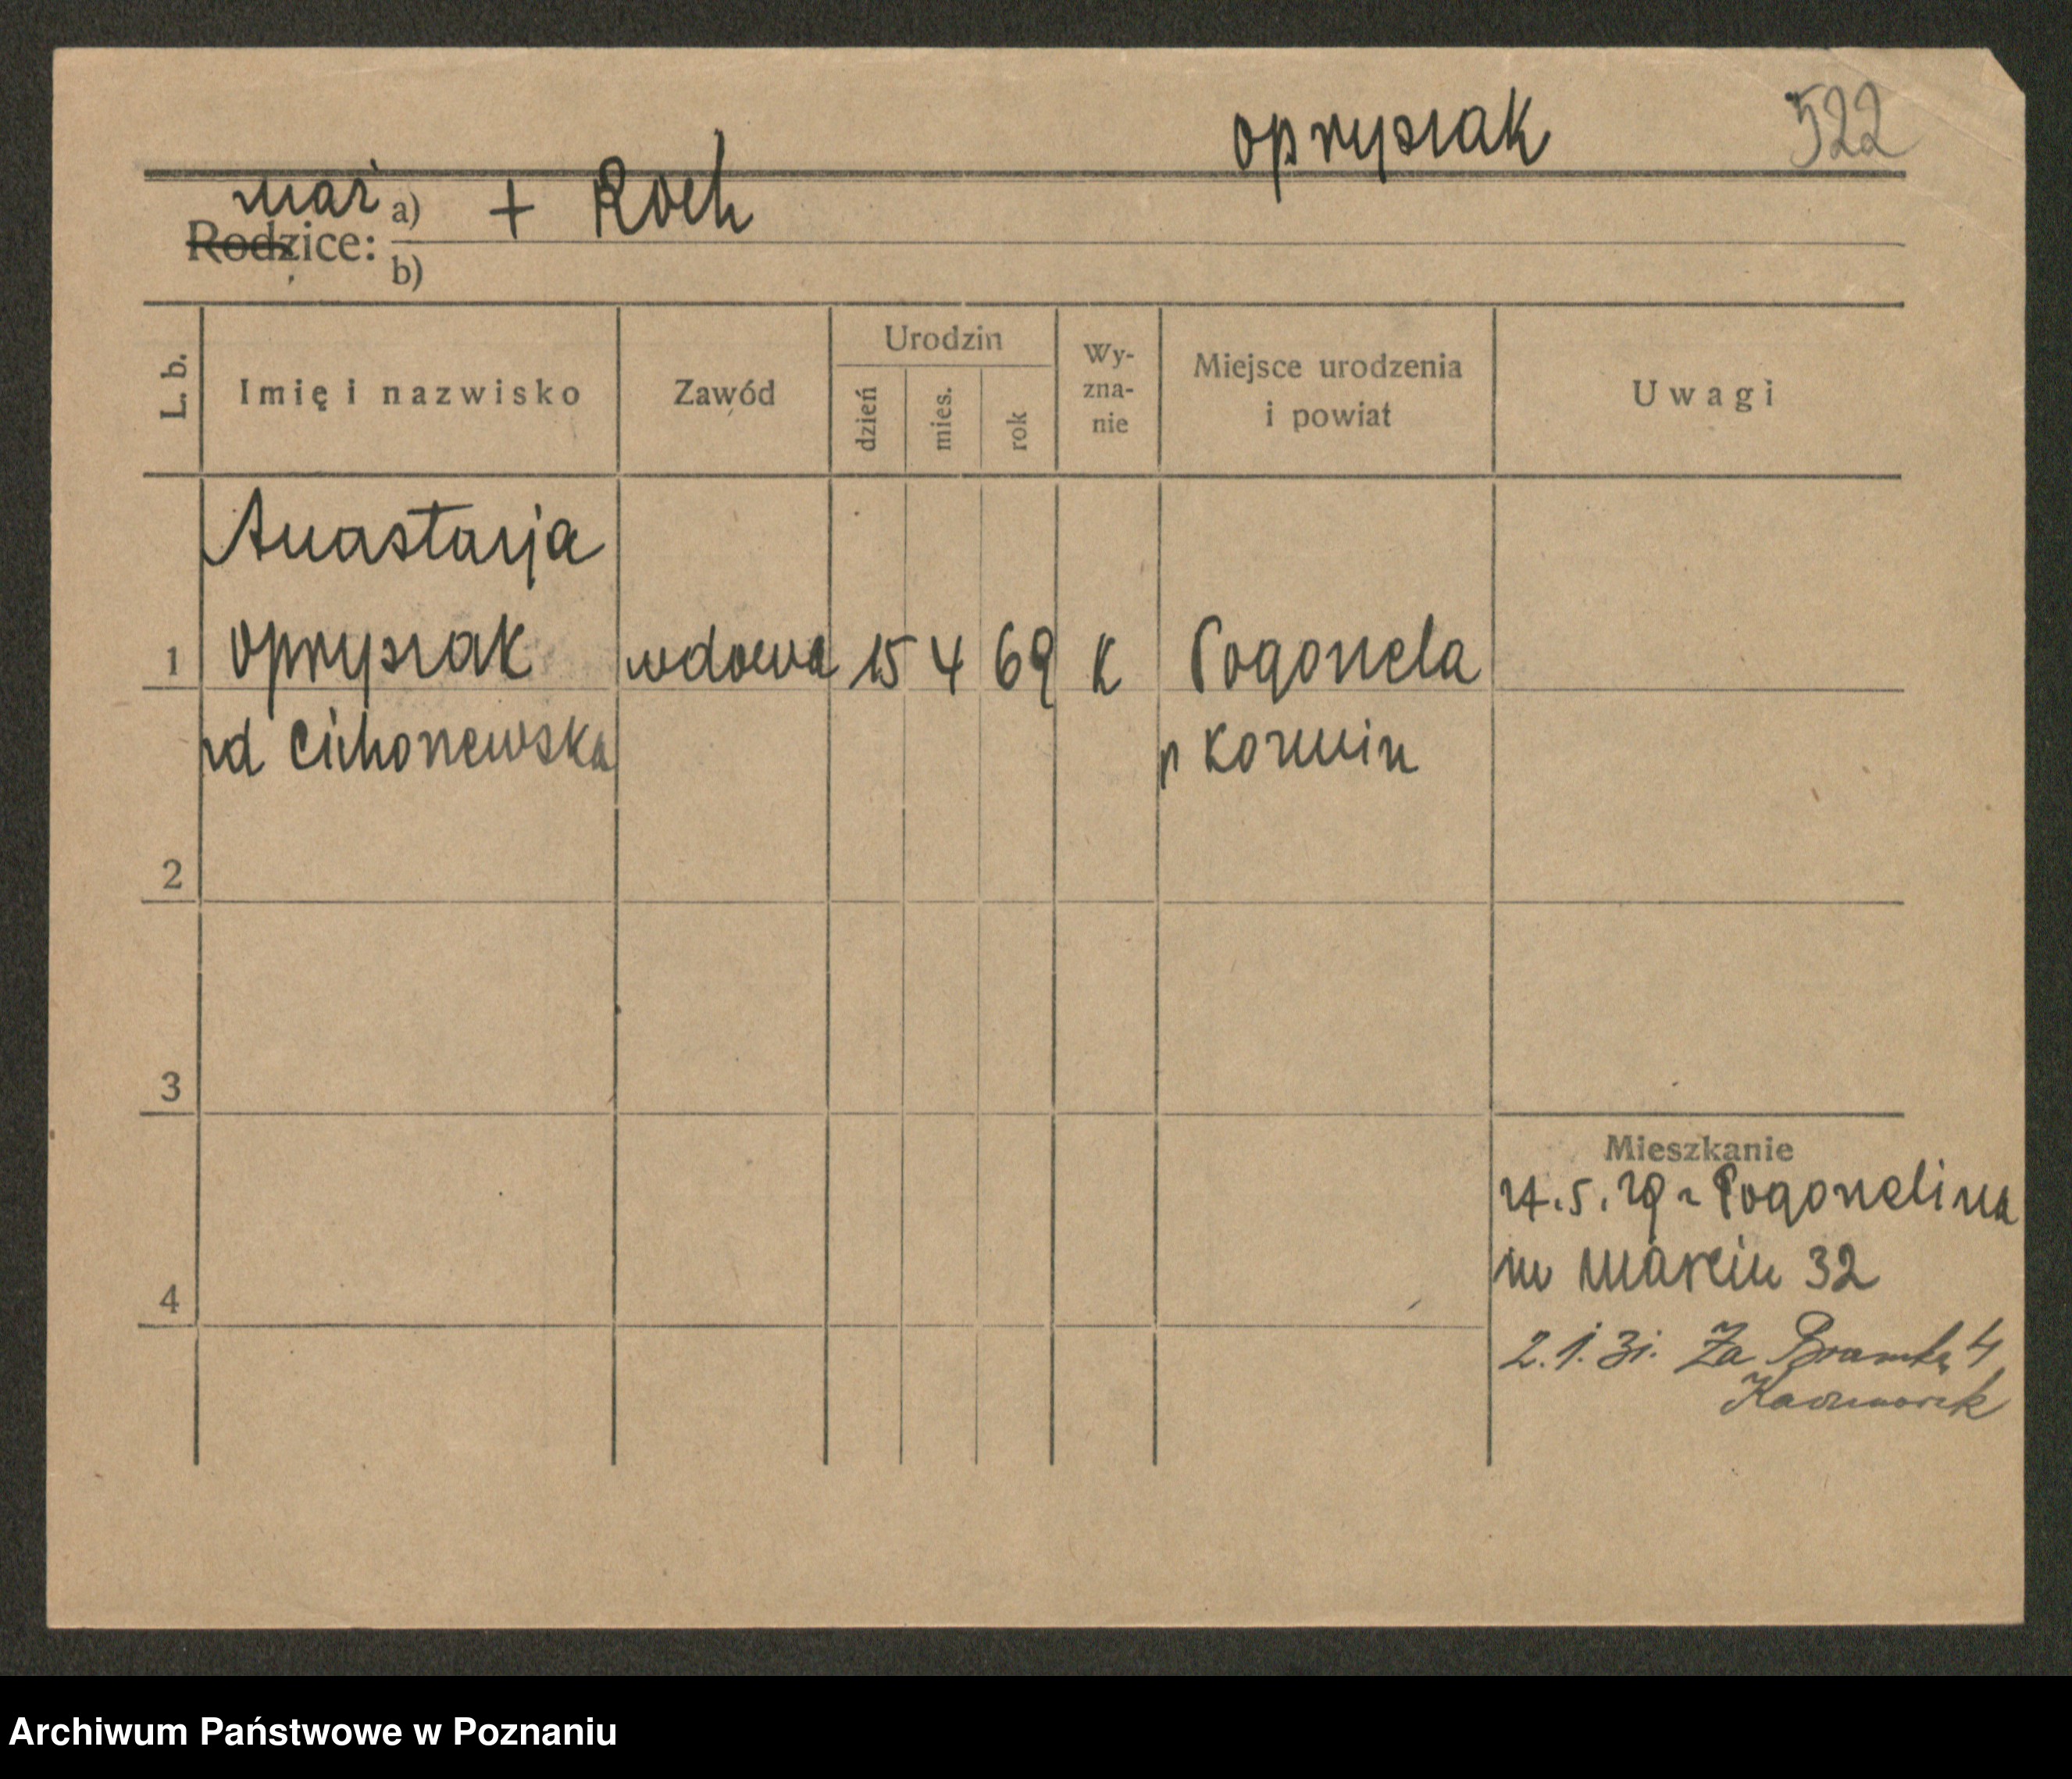 Oprysiak 522
mąż a) + Roch
Rodzice:
b)
L. b.
Imię i nazwisko
Zawód
Urodzin
dzień
mies.
rok
Wy-
zna-
nie
Miejsce urodzenia
i powiat
Uwagi
Anastazja
1 Oprysiak wdowa 15 4 69 K Pogorzela
Cichorzewska p Kozmin
2
3
Mieszkanie
5. 29 z Pogorzeli
Marcin 32
4
2. 1. 31. Za Bramką 4
Kaczmarek
Archiwum Państwowe w Poznaniu